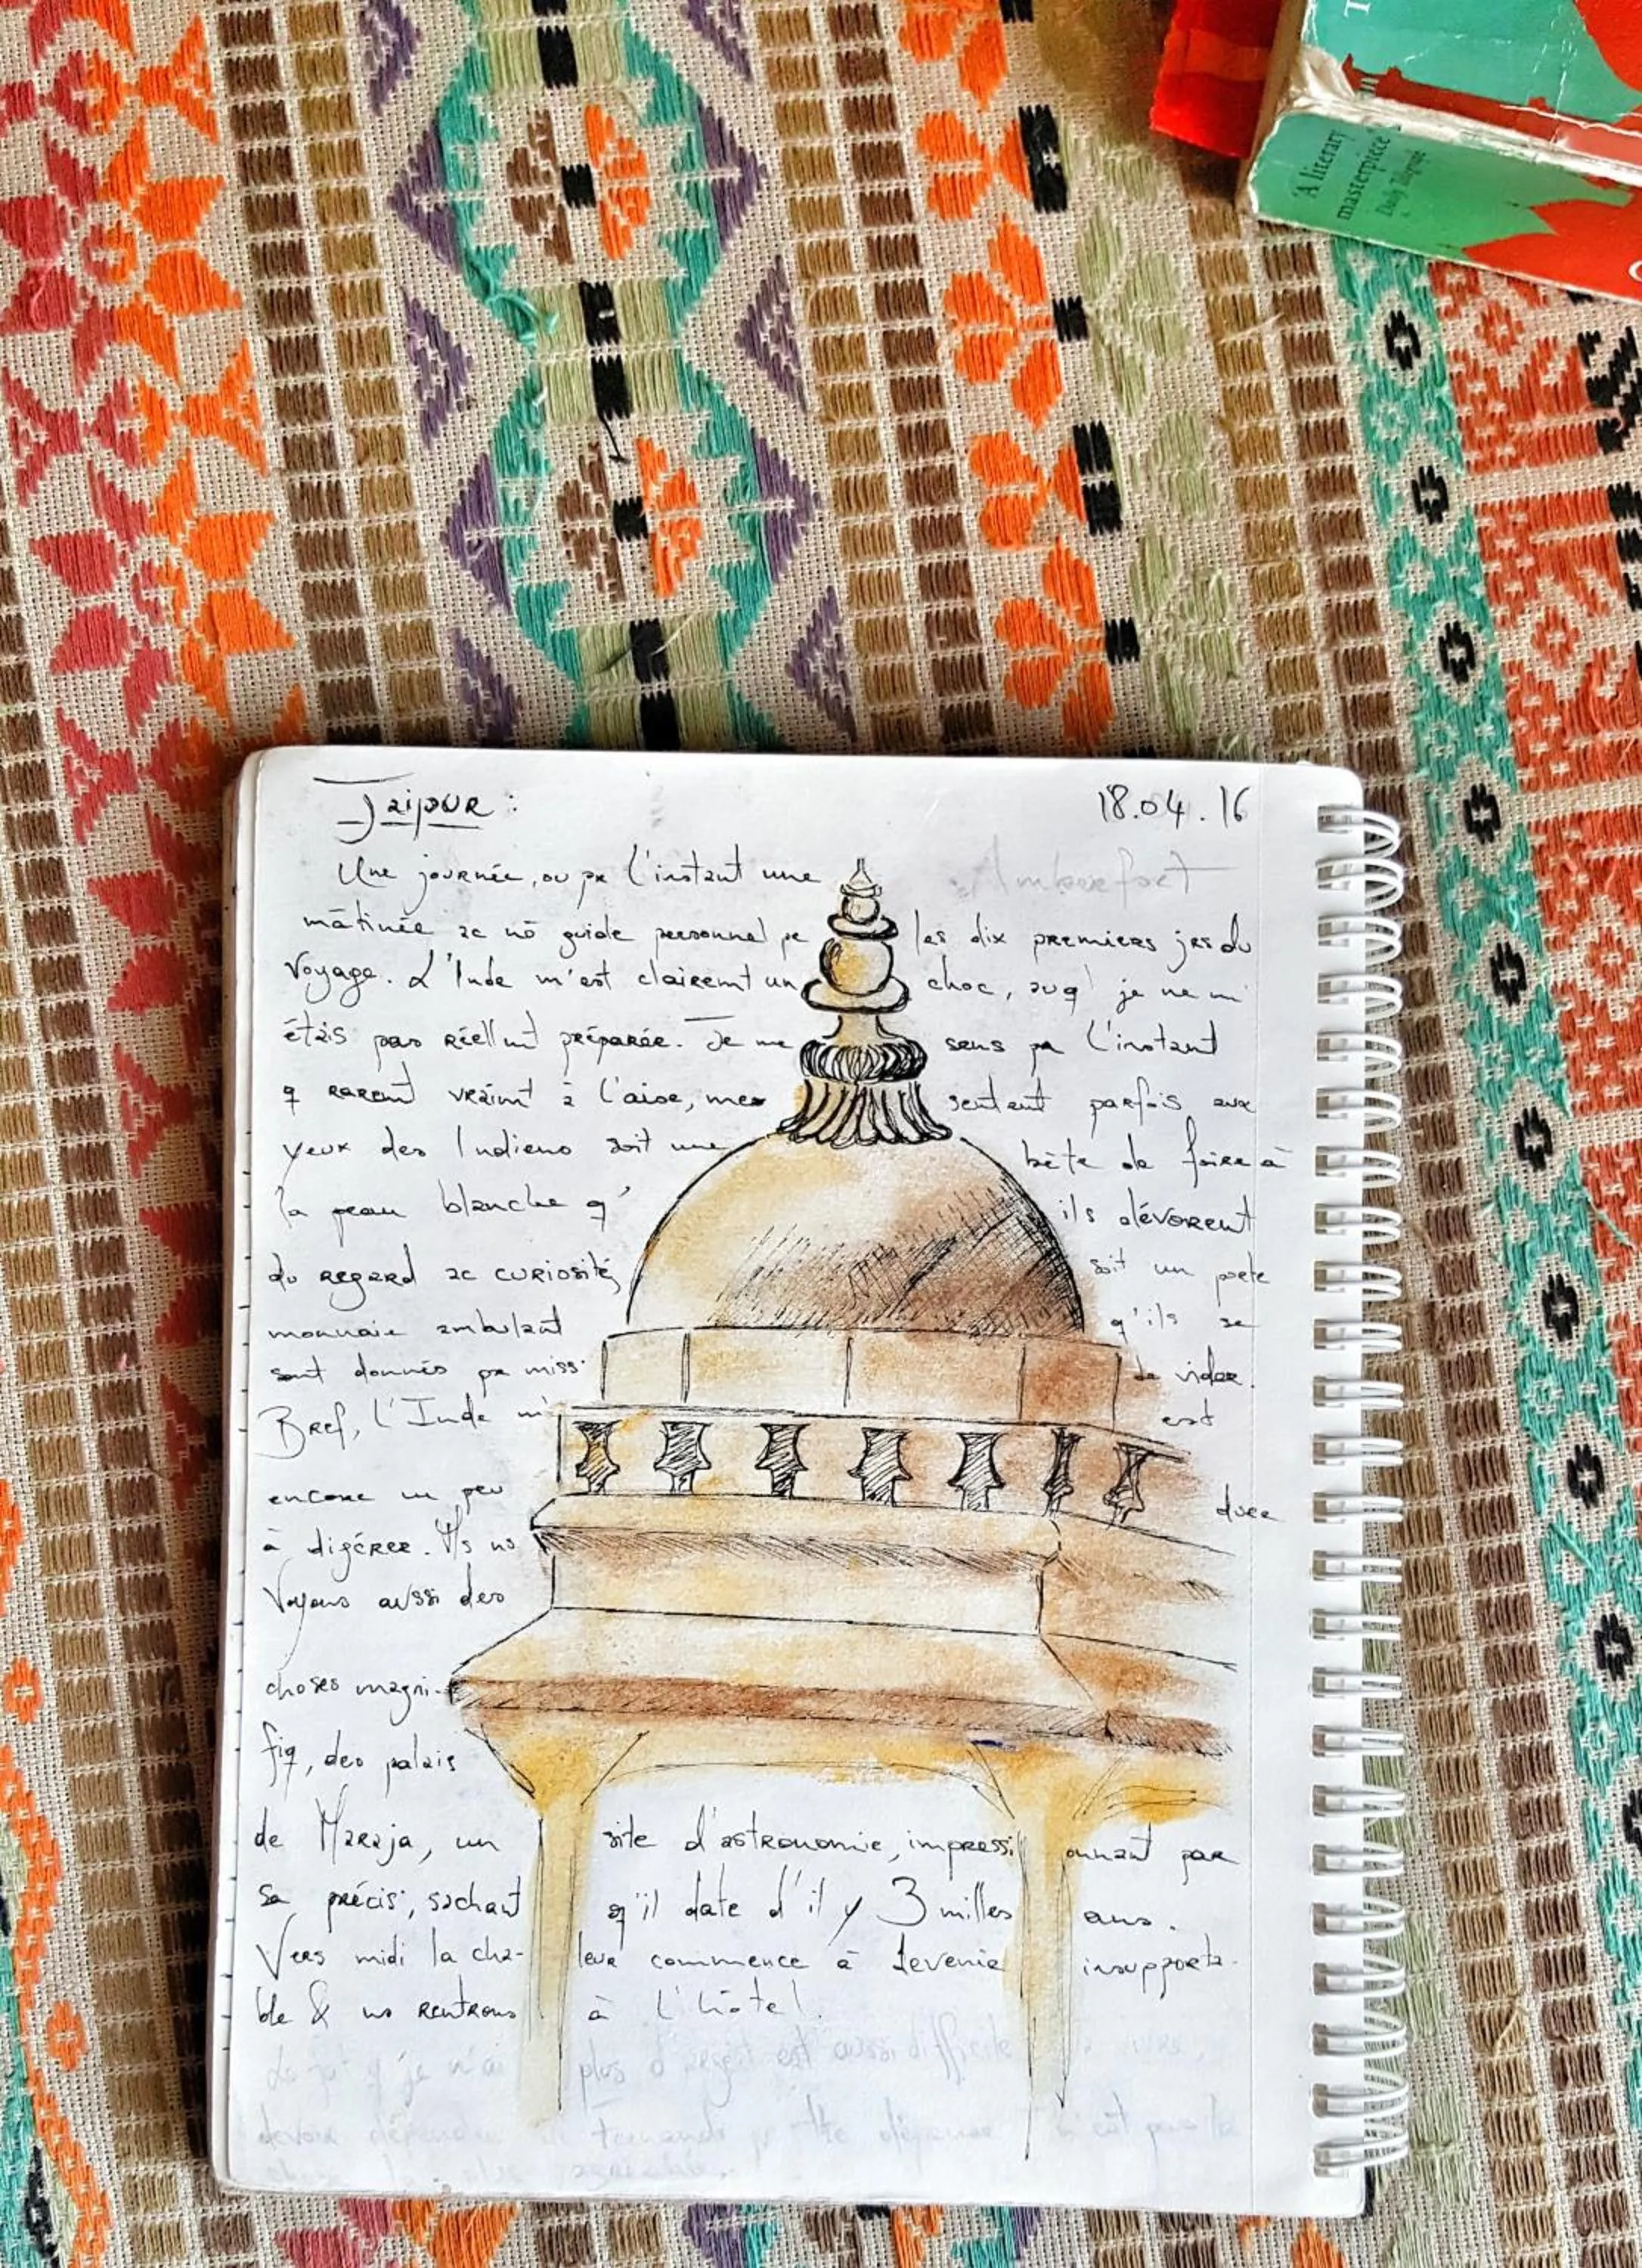 'A literary
masterpiece'
Daily Telegraph
Jaipur : 18.04.16
Une journée, ou pr l'instant une Amberfort
mâtinée ac nō guide personnel pr les dix premiers jrs du
Voyage. L'Inde m'est clairemt un choc, auq je ne m'
étais pas réellmt préparée. Je me sens pr l'instant
q raremt vraimt à l'aise, me sentant parfois aux
yeux des Indiens soit une bête de foire à
la peau blanche q' ils dévorent
du regard ac curiosité, soit un porte
monnaie ambulant q'ils se
sont donnés pr miss° de vider.
Bref, l'Inde m' est
encore un peu dure
à digérer. Ms ns
Voyons aussi des
choses magni-
fiq, des palais
de Maraja, un site d'astronomie, impressionnant par
sa précis°, sachant q'il date d'il y 3 milles ans.
Vers midi la cha- leur commence à devenir insupporta-
ble & ns rentrons à l'hôtel.
q je n'ai plus d'argent est aussi difficile
devoir dépendre